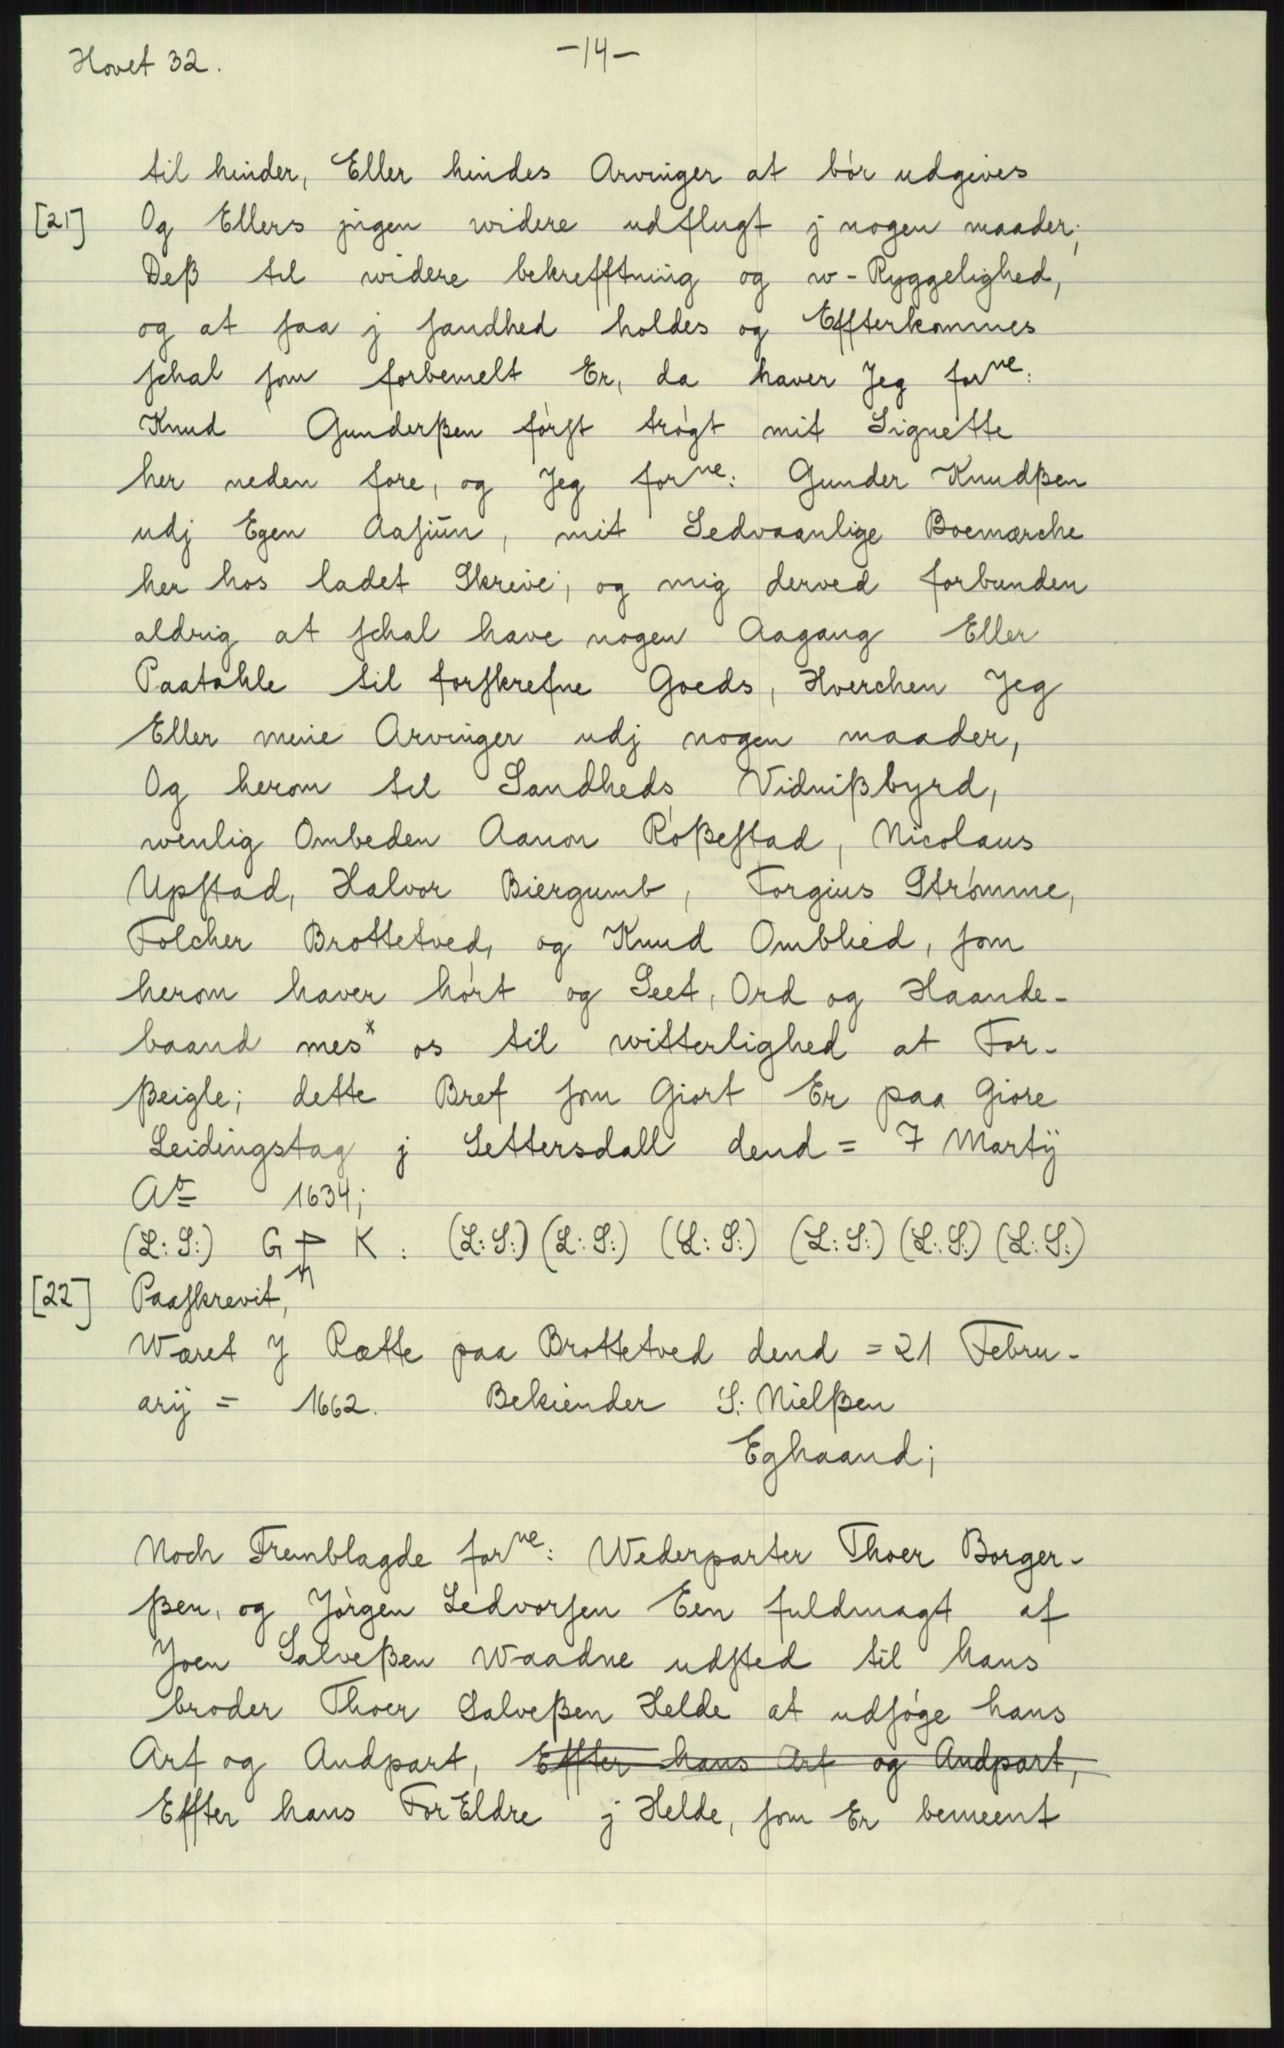 Hovet 32.
-14-
til hinder, Eller hindes Arvinger at bør udgives
[21] Og Ellers jngen widere udflugt j nogen maader;
Deß til widere bekrefftning og w-Ryggelighed,
og at saa j sandhed holdes og Effterkommes
schal som forbemelt Er, da haver Jeg forne:
Knud Gunderßen først trøgt mit Signette
her neden fore, og Jeg forne: Gunder Knudßen
udj Egen Aasiun, mit Sedvaanlige Boemærche
her hos ladet Skrive, og mig derved forbunden
aldrig at schal have nogen Aagang Eller
Paatahle til forskrefne Goeds, Hverchen Jeg
Eller mine Arvinger udj nogen maader,
Og herom til Sandheds Vidnißbyrd,
wenlig Ombeden Aanon Røßestad, Nicolaus
Upstad, Halvor Biergumb, Torgius Strømme,
Folcher Brottetved, og Knud Omblied, som
herom haver hørt og Seet, Ord og Haande-
baand mes* os til witterlighed at For-
ßeigle; dette Bref som Giort Er paa Giøre
Leidingstag j Settersdall dend = 7 Martij
Ao 1634;
(L:S:) G K : (L:S:) (L:S:) (L:S:) (L:S:) (L:S:) (L:S:)
[22] Paaskrevit,
Wæret J Rætte paa Brottetved dend = 21 Febru-
arij = 1662. Bekiender S: Nielßen
Eghaand;
Noch Fremblagde forne: Wederparter Thoer Borger-
ßen, og Jørgen Sedvorsen Een fuldmagt af
Joen Salveßen Waadne udsted til hans
broder Thoer Salveßen Helde at udsøge hans
Arf og Andpart, Effter hans Arf og Andpart,
Effter hans ForEldre j Helde, som Er bemeent